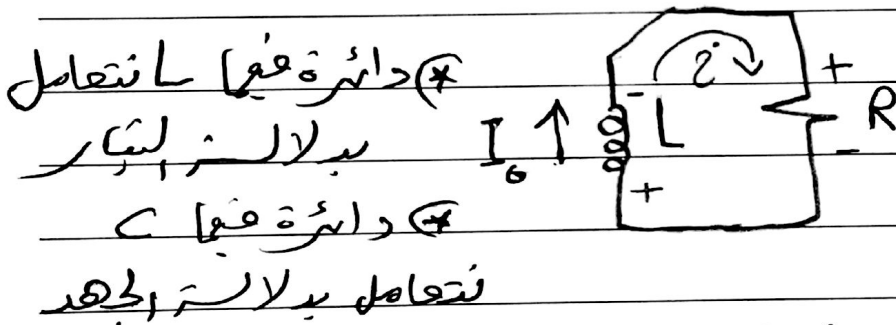 * دائرة فيها L نتعامل
بدلالة التيار
* دائرة فيها C
نتعامل بدلالة الجهد
I₀ ↑
- L +
i
+ R -